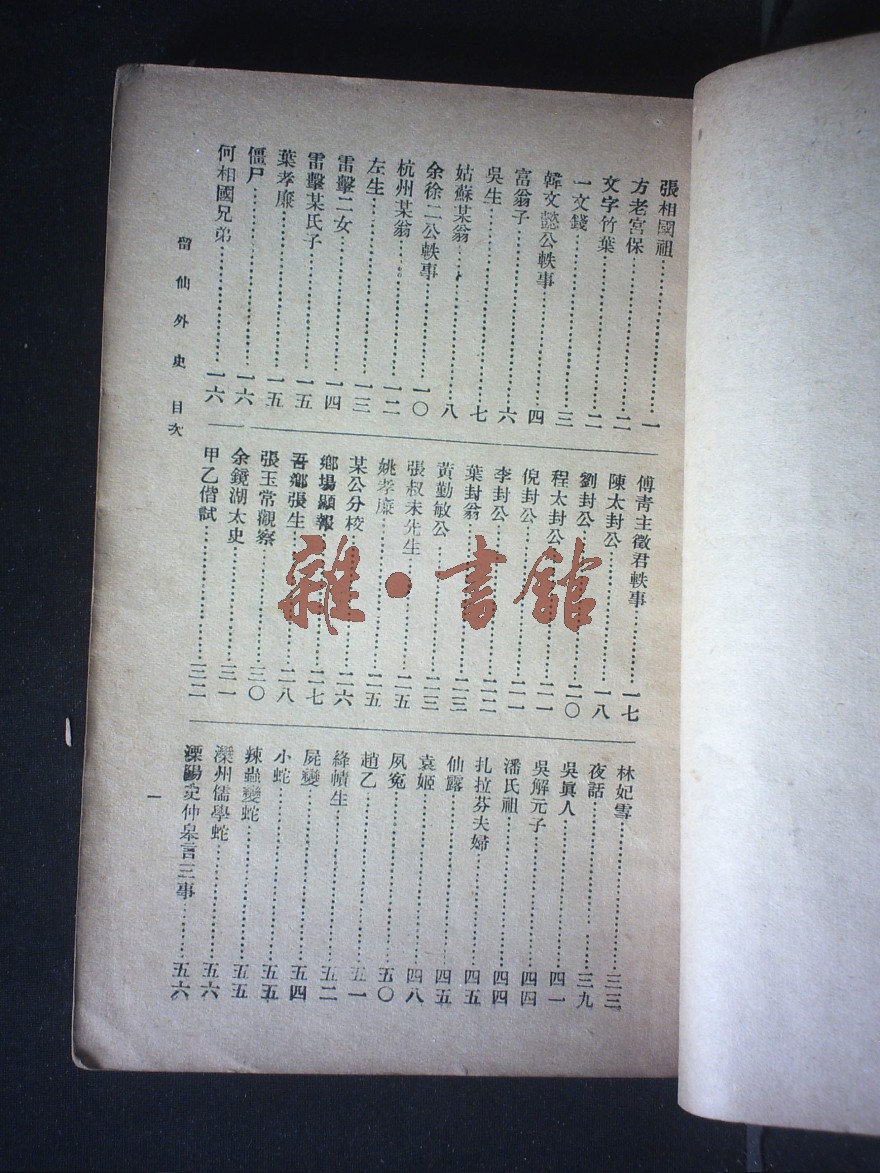 張相國祖……一
方老宮保……二
文字竹葉……二
一文錢……三
韓文懿公軼事……四
富翁子……六
吳生……七
姑蘇某翁……八
余徐二公軼事……一〇
杭州某翁……一二
左生……一三
雷擊二女……一四
雷擊某氏子……一五
葉孝廉……一五
僵尸……一六
何相國兄弟……一六
傅靑主徵君軼事……一七
陳太封公……一八
劉封公……二〇
程太封公……二一
倪封公……二一
李封公……二二
葉封翁……二三
黃勤敏公……二三
張叔未先生……二五
姚孝廉……二五
某公分校……二六
鄉場顯報……二七
吾鄉張生……二八
張玉常觀察……三〇
余鏡湖太史……三一
甲乙偕試……三二
林妃雪……三三
夜話……三九
吳眞人……四一
吳解元子……四四
潘氏祖……四四
扎拉芬夫婦……四五
仙露……四五
袁姬……四八
夙冤……五〇
趙乙……五一
絳幘生……五二
屍變……五四
小蛇……五五
辣蟲變蛇……五五
灤州儒學蛇……五六
溧陽史仲皋言三事……五六
留仙外史 目次
一
雜·書館